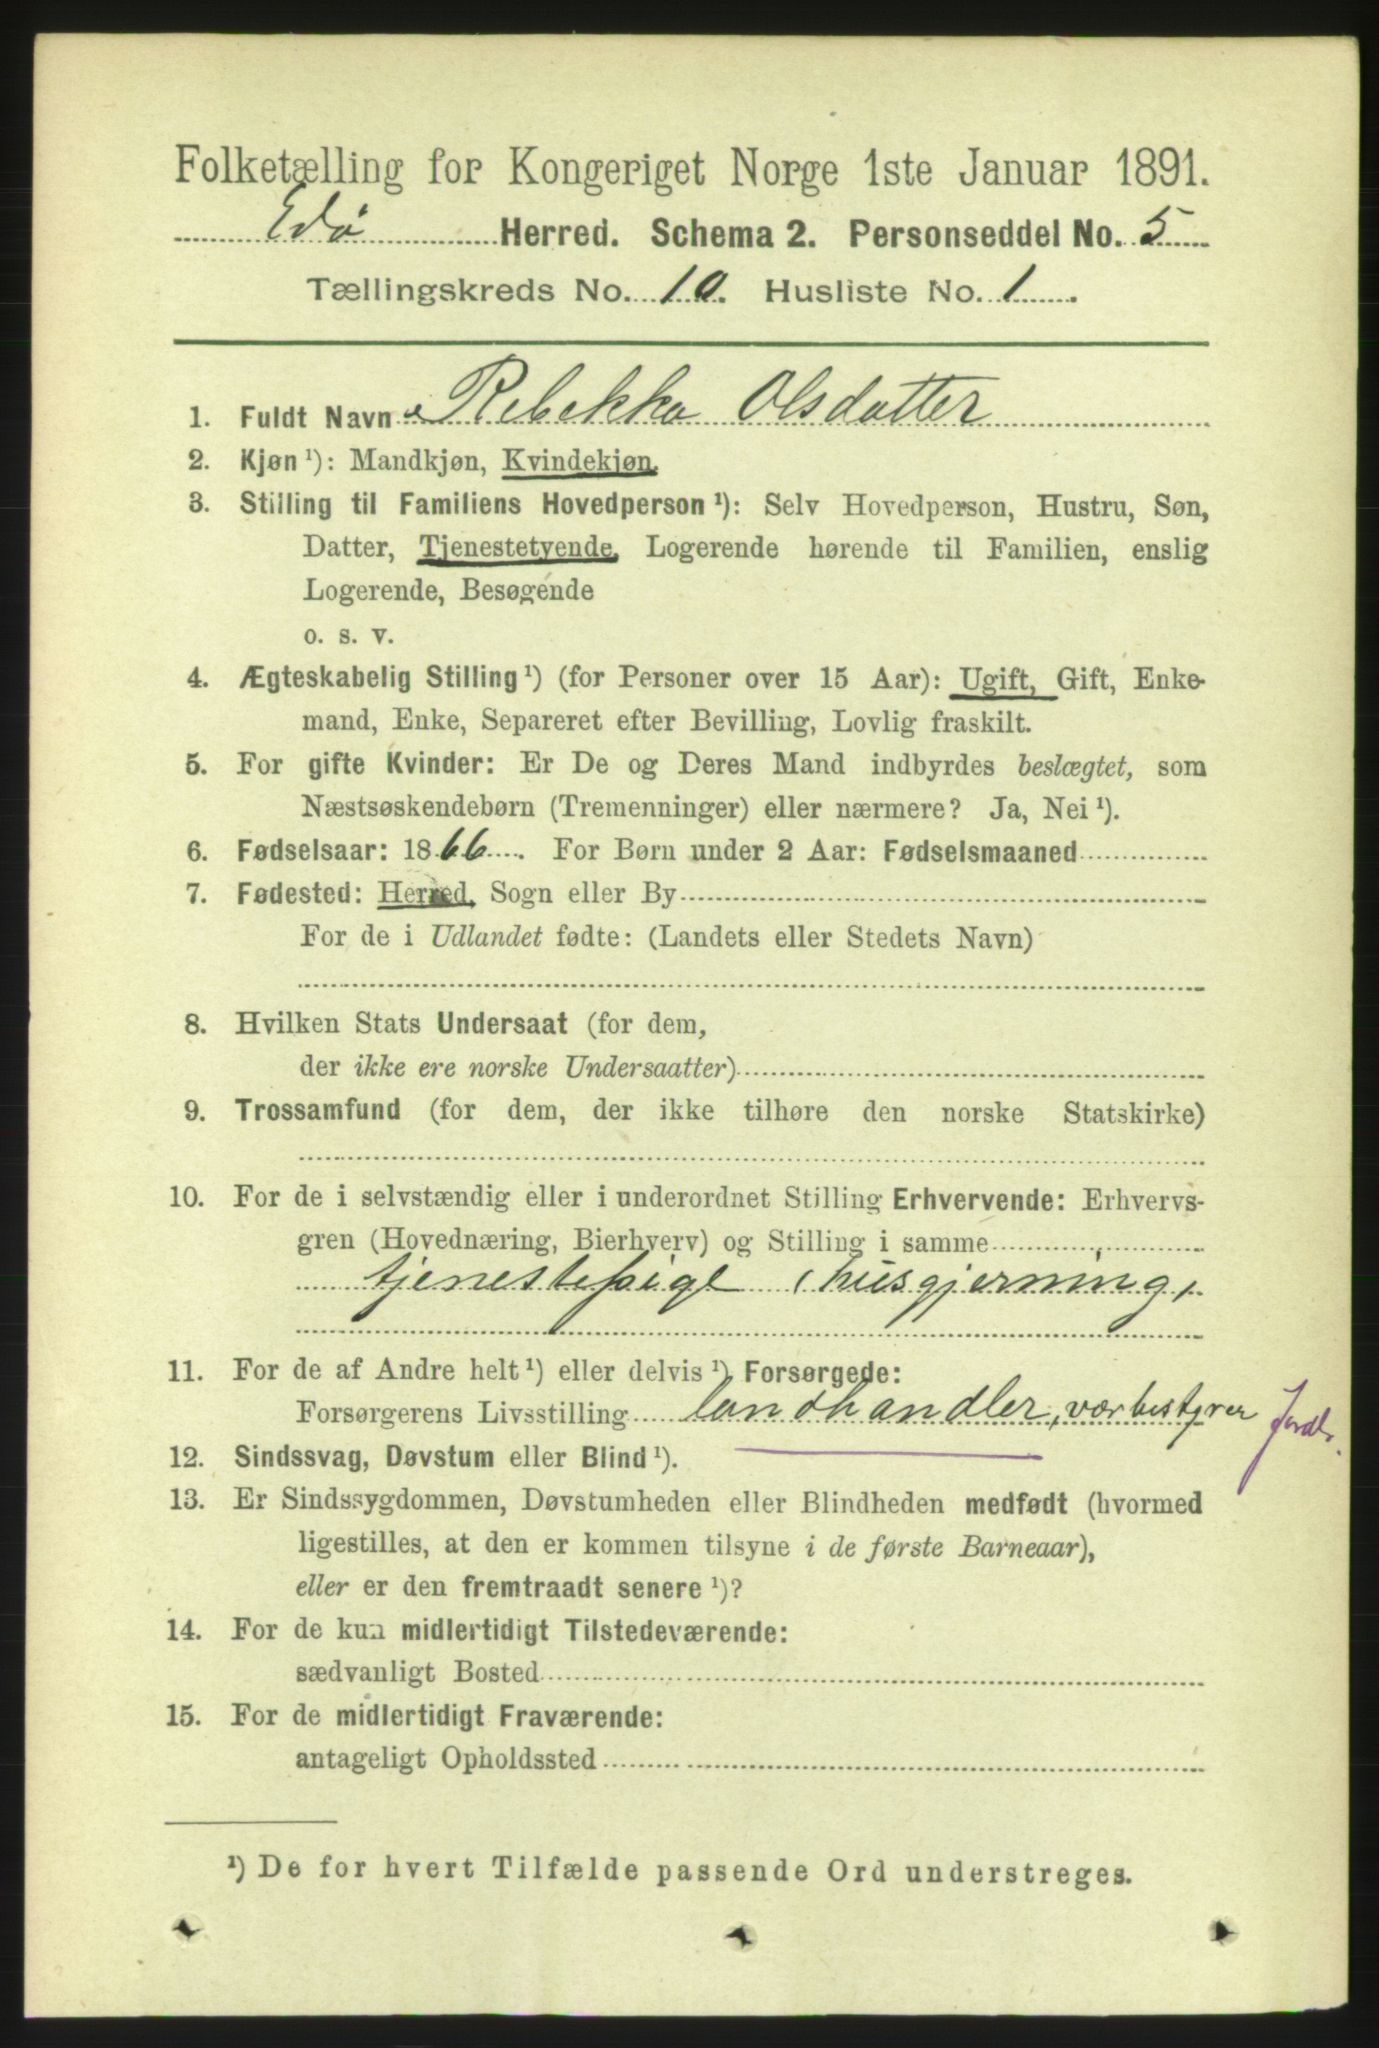 Folketælling for Kongeriget Norge 1ste Januar 1891.
Edø Herred. Schema 2. Personseddel No. 5
Tællingskreds No. 10. Husliste No. 1.
1. Fuldt Navn Rebekka Olsdatter
2. Kjøn ¹): Mandkjøn, Kvindekjøn.
3. Stilling til Familiens Hovedperson ¹): Selv Hovedperson, Hustru, Søn,
Datter, Tjenestetyende, Logerende hørende til Familien, enslig
Logerende, Besøgende
o. s. v.
4. Ægteskabelig Stilling ¹) (for Personer over 15 Aar): Ugift, Gift, Enke-
mand, Enke, Separeret efter Bevilling, Lovlig fraskilt.
5. For gifte Kvinder: Er De og Deres Mand indbyrdes beslægtet, som
Næstsøskendebørn (Tremenninger) eller nærmere? Ja, Nei ¹).
6. Fødselsaar: 1866. For Børn under 2 Aar: Fødselsmaaned
7. Fødested: Herred, Sogn eller By
For de i Udlandet fødte: (Landets eller Stedets Navn)
8. Hvilken Stats Undersaat (for dem,
der ikke ere norske Undersaatter)
9. Trossamfund (for dem, der ikke tilhøre den norske Statskirke)
10. For de i selvstændig eller i underordnet Stilling Erhvervende: Erhvervs-
gren (Hovednæring, Bierhverv) og Stilling i samme
tjenestepige i husgjerning,
11. For de af Andre helt ¹) eller delvis ¹) Forsørgede:
Forsørgerens Livsstilling landhandler, værbestyrer
12. Sindssvag, Døvstum eller Blind ¹).
13. Er Sindssygdommen, Døvstumheden eller Blindheden medfødt (hvormed
ligestilles, at den er kommen tilsyne i de første Barneaar),
eller er den fremtraadt senere ¹)?
14. For de kun midlertidigt Tilstedeværende:
sædvanligt Bosted
15. For de midlertidigt Fraværende:
antageligt Opholdssted
¹) De for hvert Tilfælde passende Ord understreges.